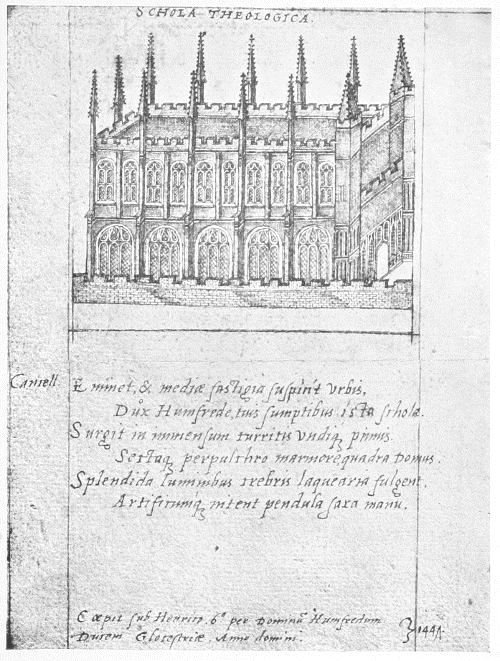 SCHOLA THEOLOGICA.
Cancell. Eminet, & mediæ fastigia suspicit Vrbis,
Dux Humfrede, tuis sumptibus ista schola.
Surgit in immensum turritis Vndiq; pinnis.
Sectaq; perpulchro marmore quadra Domus.
Splendida luminibus crebris laquearia fulgent.
Artificumq; nitent pendula saxa manu.
Cœpit sub Henrico. 6° per Dominū Humfredum
Ducem Glocestriæ. Anno domini. } 144